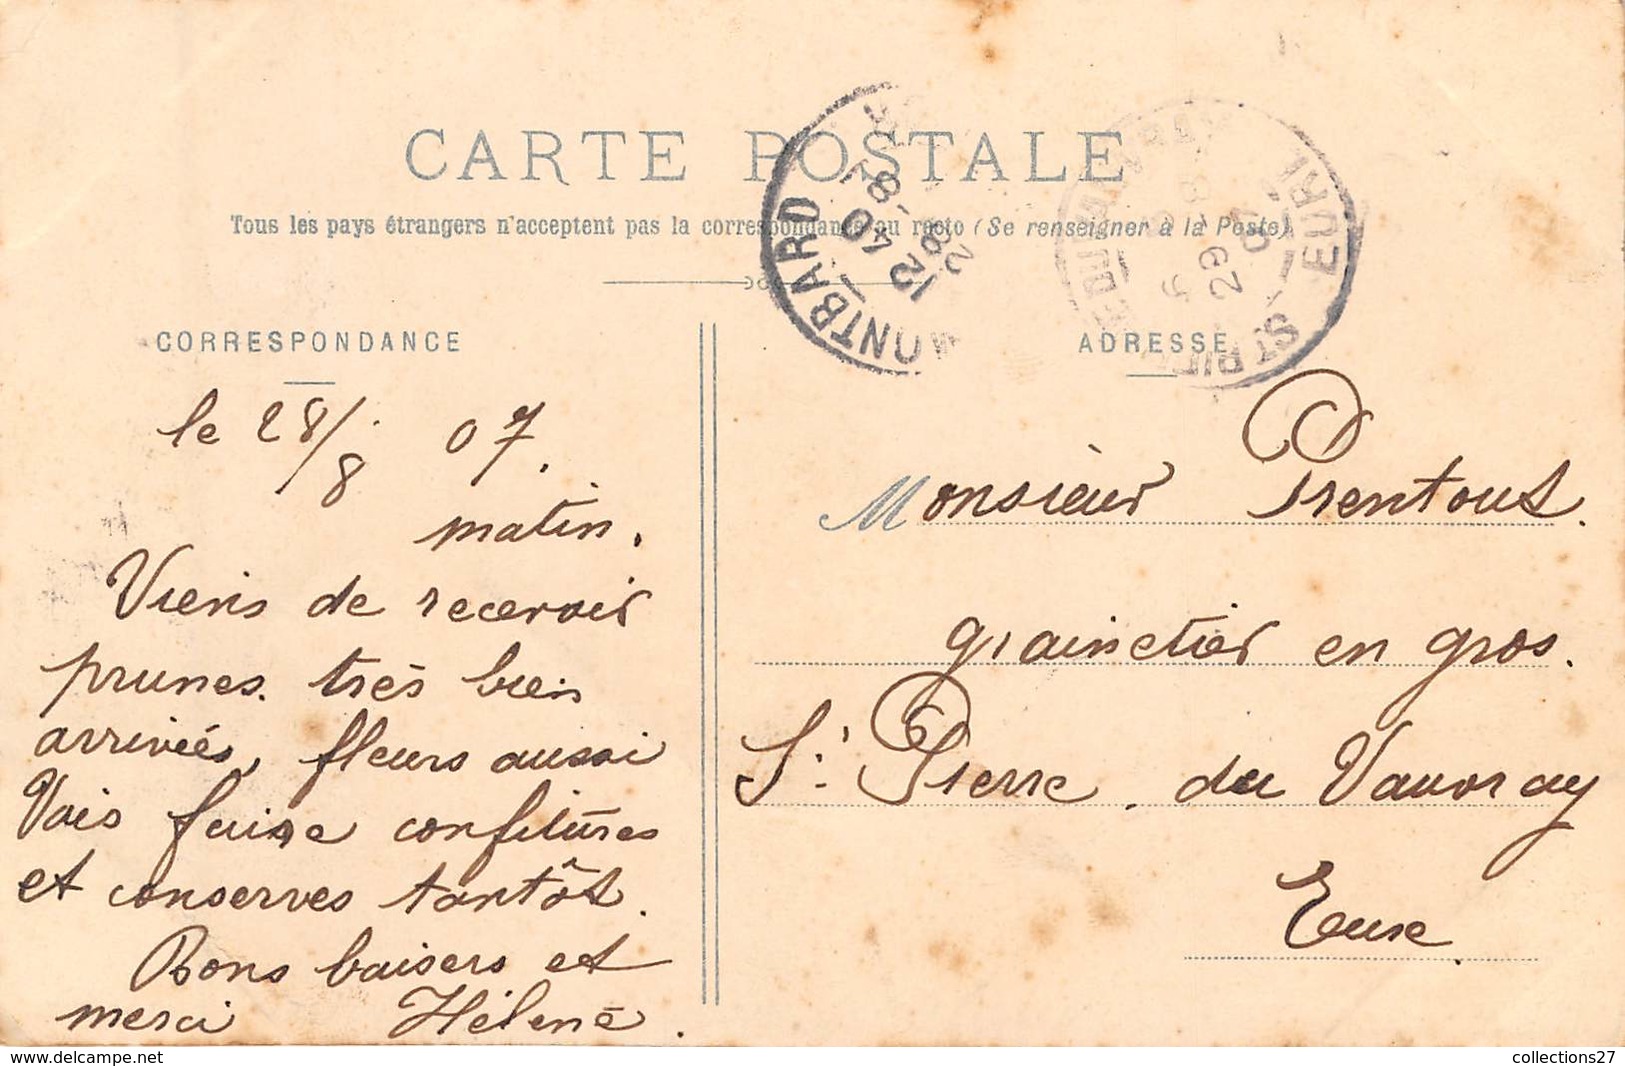 CARTE POSTALE
Tous les pays étrangers n'acceptent pas la correspondance au recto (Se renseigner à la Poste)
CORRESPONDANCE
le 28/8 07.
matin.
Viens de recevoir
prunes. très bien
arrivées, fleurs aussi
Vais faire confitures
et conserves tantôt.
Bons baisers et
merci Hélène.
ADRESSE
Monsieur Prentout.
grainetier en gros.
St Pierre. du Vauvray
Eure.
MONTBARD
12 40
28 -8
ST PIERRE DU VAUVRAY
EURE
29
collections27